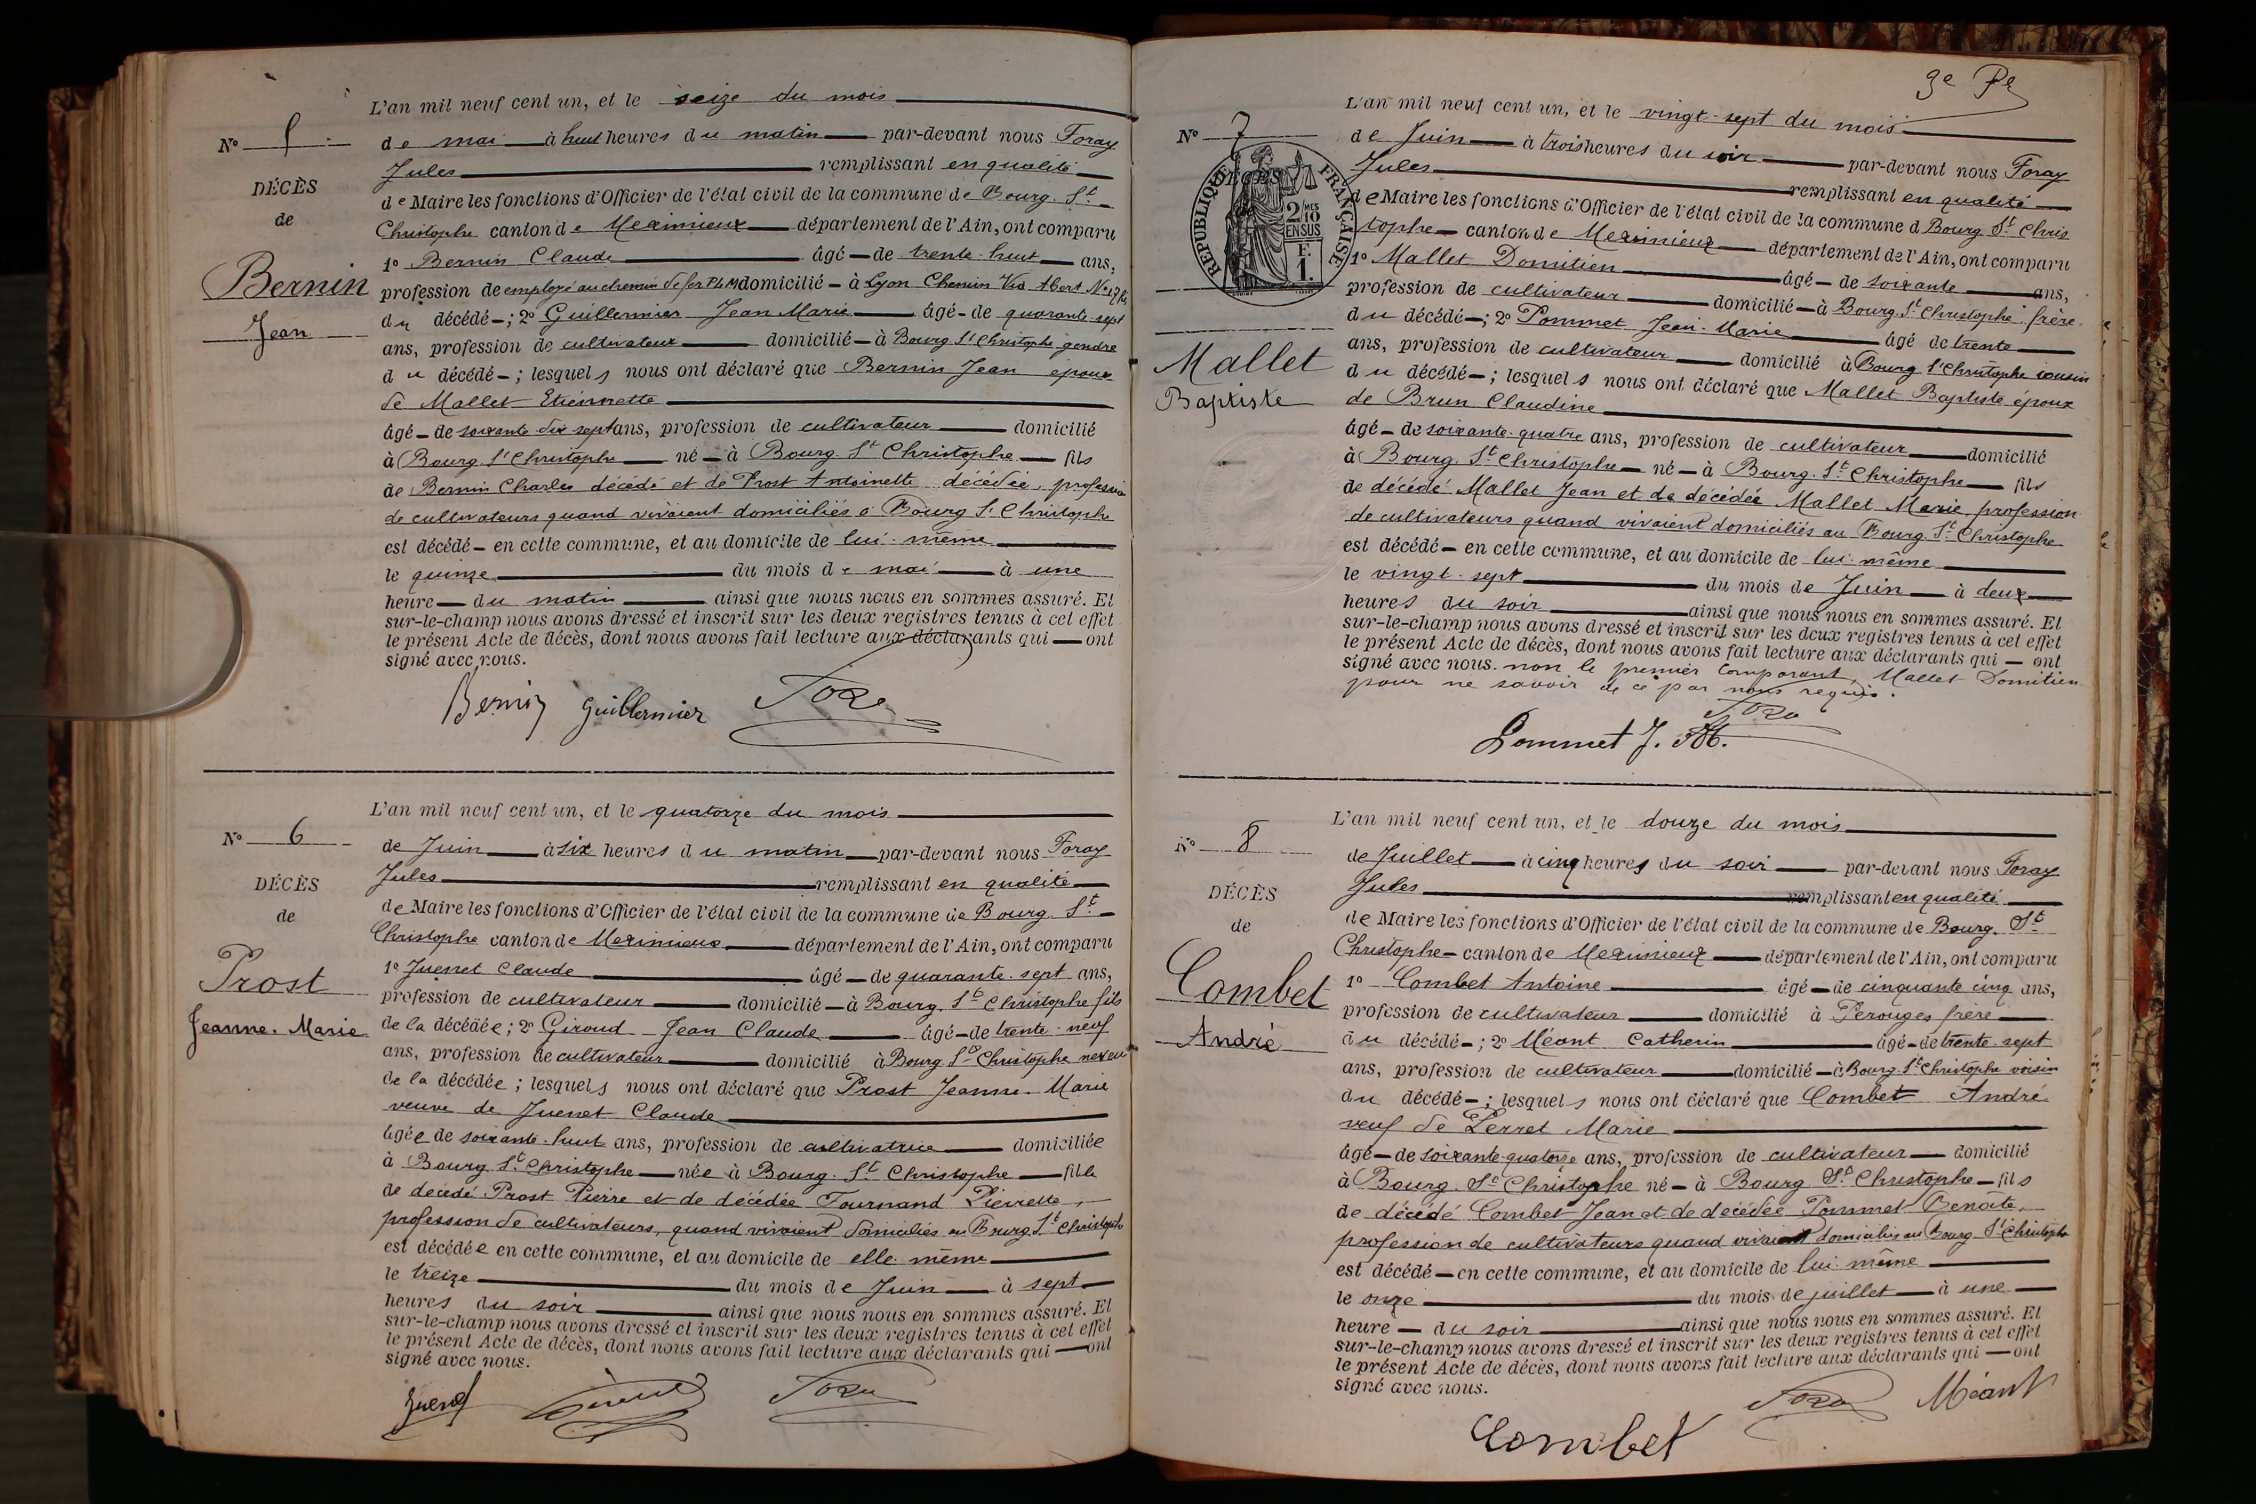 L'an mil neuf cent un, et le seize du mois
N° 5
de mai à huit heures du matin par-devant nous Foray
Jules remplissant en qualité
DÉCÈS
de Maire les fonctions d'Officier de l'état civil de la commune de Bourg. St
de
Christophe canton de Meximieux département de l'Ain, ont comparu
1° Bernin Claude âgé de trente huit ans,
Bernin
profession de employé au chemin de fer PLM domicilié à Lyon Chemin Vis Abert
du décédé; 2° Guillermier Jean Marie âgé de quarante sept
Jean
ans, profession de cultivateur domicilié à Bourg St Christophe gendre
du décédé; lesquels nous ont déclaré que Bernin Jean époux
de Mallet Etiennette
âgé de soixante dix sept ans, profession de cultivateur domicilié
à Bourg St Christophe né à Bourg St Christophe fils
de Bernin Charles décédé et de Prost Antoinette décédée, profession
de cultivateurs quand vivaient domiciliés à Bourg St Christophe
est décédé en cette commune, et au domicile de lui même
le quinze du mois de mai à une
heure du matin ainsi que nous nous en sommes assuré. Et
sur-le-champ nous avons dressé et inscrit sur les deux registres tenus à cet effet
le présent Acte de décès, dont nous avons fait lecture aux déclarants qui ont
signé avec nous.
Bernin Guillermier Foray
L'an mil neuf cent un, et le quatorze du mois
N° 6
de Juin à six heures du matin par-devant nous Foray
Jules remplissant en qualité
DÉCÈS
de Maire les fonctions d'Officier de l'état civil de la commune de Bourg St
de
Christophe canton de Meximieux département de l'Ain, ont comparu
1° Juenet Claude âgé de quarante sept ans,
Prost
profession de cultivateur domicilié à Bourg St Christophe fils
Jeanne-Marie
de la décédée; 2° Giroud Jean Claude âgé de trente neuf
ans, profession de cultivateur domicilié à Bourg St Christophe neveu
de la décédée; lesquels nous ont déclaré que Prost Jeanne-Marie
veuve de Juenet Claude
âgée de soixante huit ans, profession de cultivatrice domiciliée
à Bourg St Christophe née à Bourg St Christophe fille
de décédé Prost Pierre et de décédée Fournand Pierrette,
profession de cultivateurs, quand vivaient domiciliés au Bourg St Christophe
est décédée en cette commune, et au domicile de elle même
le treize du mois de Juin à sept
heures du soir ainsi que nous nous en sommes assuré. Et
sur-le-champ nous avons dressé et inscrit sur les deux registres tenus à cet effet
le présent Acte de décès, dont nous avons fait lecture aux déclarants qui ont
signé avec nous.
Juenet Giroud Foray
9e
L'an mil neuf cent un, et le vingt-sept du mois
N° 7
de Juin à trois heures du soir par-devant nous Foray
Jules remplissant en qualité
DÉCÈS
RÉPUBLIQUE FRANÇAISE
2/10 MES
EN SUS
F.
1.
de Maire les fonctions d'Officier de l'état civil de la commune d Bourg St Chris
tophe canton de Meximieux département de l'Ain, ont comparu
1° Mallet Domitien âgé de soixante ans,
profession de cultivateur domicilié à Bourg St Christophe frère
du décédé; 2° Pommet Jean-Marie âgé de trente
Mallet
ans, profession de cultivateur domicilié à Bourg St Christophe cousin
du décédé; lesquels nous ont déclaré que Mallet Baptiste époux
Baptiste
de Brun Claudine
âgé de soixante-quatre ans, profession de cultivateur domicilié
à Bourg St Christophe né à Bourg St Christophe fils
de décédé Mallet Jean et de décédée Mallet Marie profession
de cultivateurs quand vivaient domiciliés au Bourg St Christophe
est décédé en cette commune, et au domicile de lui même
le vingt-sept du mois de Juin à deux
heures du soir ainsi que nous nous en sommes assuré. Et
sur-le-champ nous avons dressé et inscrit sur les deux registres tenus à cet effet
le présent Acte de décès, dont nous avons fait lecture aux déclarants qui ont
signé avec nous. non le premier comparant, Mallet Domitien
pour ne savoir de ce par nous requis.
Foray
Pommet J. M.
L'an mil neuf cent un, et le douze du mois
N° 8
de Juillet à cinq heures du soir par-devant nous Foray
Jules remplissant en qualité
DÉCÈS
de Maire les fonctions d'Officier de l'état civil de la commune de Bourg. St
de
Christophe canton de Meximieux département de l'Ain, ont comparu
1° Combet Antoine âgé de cinquante cinq ans,
Combet
profession de cultivateur domicilié à Perouges frère
André
du décédé; 2° Méant Catherin âgé de trente sept
ans, profession de cultivateur domicilié à Bourg St Christophe voisin
du décédé; lesquels nous ont déclaré que Combet André
veuf de Perret Marie
âgé de soixante quatorze ans, profession de cultivateur domicilié
à Bourg St Christophe né à Bourg St Christophe fils
de décédé Combet Jean et de décédée Pommet Benoîte,
profession de cultivateurs quand vivaient domiciliés au Bourg St Christophe
est décédé en cette commune, et au domicile de lui même
le onze du mois de juillet à une
heure du soir ainsi que nous nous en sommes assuré. Et
sur-le-champ nous avons dressé et inscrit sur les deux registres tenus à cet effet
le présent Acte de décès, dont nous avons fait lecture aux déclarants qui ont
signé avec nous.
Foray Méant
Combet